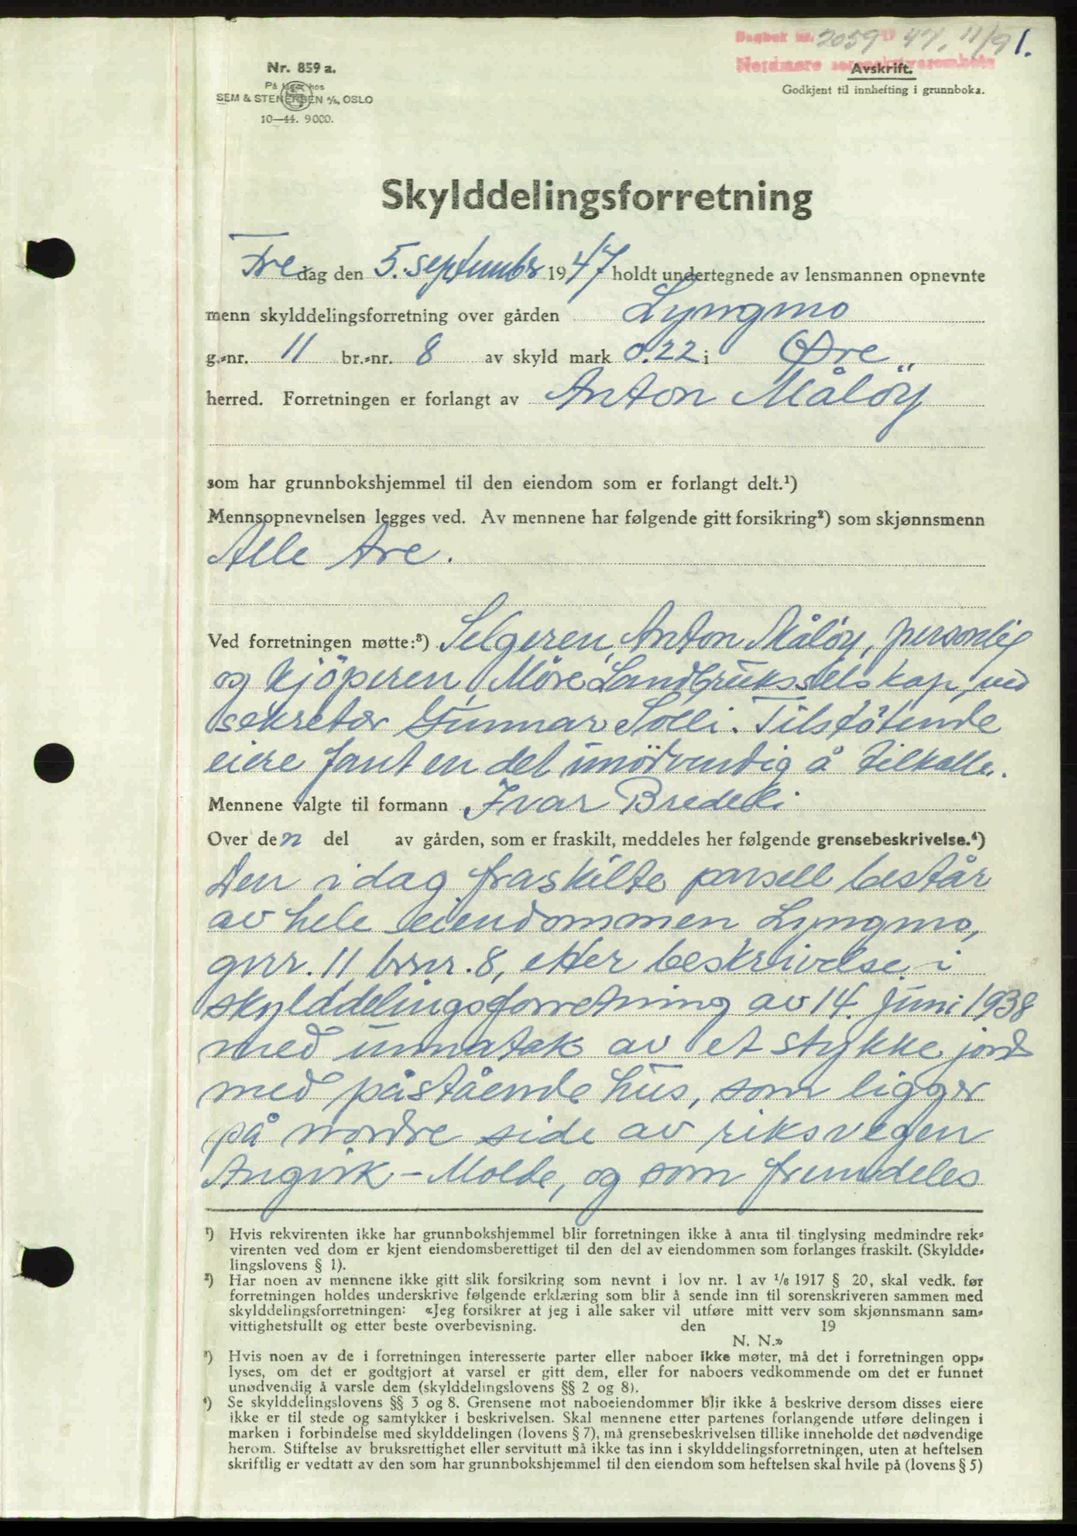 Dagbok nr. 2059 19 47, 11/9 1.
Nordmøre sorenskriverembete
Nr. 859 a.
På lager hos
SEM & STENERSEN A/S, OSLO
10—44. 9000.
Avskrift.
Godkjent til innhefting i grunnboka.
Skylddelingsforretning
Fredag den 5. septembr 1947 holdt undertegnede av lensmannen opnevnte
menn skylddelingsforretning over gården Lyngmo
g.-nr. 11 br.-nr. 8 av skyld mark 0.22 i Øre
herred. Forretningen er forlangt av Anton Målöy
som har grunnbokshjemmel til den eiendom som er forlangt delt.¹)
Mennsopnevnelsen legges ved. Av mennene har følgende gitt forsikring²) som skjønnsmenn
Alle tre.
Ved forretningen møtte:³) Selgeren, Anton Målöy, personlig
og kjöperen, Möre Landbruksselskap, ved
sekretær Gunnar Solli. Tilstötende
eiere fant en det unödvendig å tilkalle.
Mennene valgte til formann Ivar Bredeli
Over den del av gården, som er fraskilt, meddeles her følgende grensebeskrivelse.⁴)
Den i dag fraskilte parsell består
av hele eiendommen Lyngmo,
gnr. 11 brnr. 8, etter beskrivelse i
skylddelingsforretning av 14. juni 1938
med unntak av et stykke jord
med påstående hus, som ligger
på nordre side av riksvegen
Angvik – Molde, og som fremdeles
¹) Hvis rekvirenten ikke har grunnbokshjemmel blir forretningen ikke å anta til tinglysing medmindre rek-
virenten ved dom er kjent eiendomsberettiget til den del av eiendommen som forlanges fraskilt. (Skyldde-
lingslovens § 1).
²) Har noen av mennene ikke gitt slik forsikring som nevnt i lov nr. 1 av 1/6 1917 § 20, skal vedk. før
forretningen holdes underskrive følgende erklæring som blir å sende inn til sorenskriveren sammen med
skylddelingsforretningen: «Jeg forsikrer at jeg i alle saker vil utføre mitt verv som skjønnsmann sam-
vittighetsfullt og etter beste overbevisning. den 19
N. N.»
³) Hvis noen av de i forretningen interesserte parter eller naboer ikke møter, må det i forretningen opp-
lyses, om det er godtgjort at varsel er gitt dem, eller for naboers vedkommende om det er funnet
unødvendig å varsle dem (skylddelingslovens §§ 2 og 8).
⁴) Se skylddelingslovens §§ 3 og 8. Grensene mot naboeiendommer blir ikke å beskrive dersom disses eiere
ikke er til stede og samtykker i beskrivelsen. Skal mennene etter partenes forlangende utføre delingen i
marken i forbindelse med skylddelingen (lovens § 7), må grensebeskrivelsen tillike inneholde det nødvendige
herom. Stiftelse av bruksrettighet eller servitutt må ikke tas inn i skylddelingsforretningen, uten at heftelsen
skriftlig er vedtatt av den som har grunnbokshjemmel til den eiendom som heftelsen skal hvile på (lovens § 5)